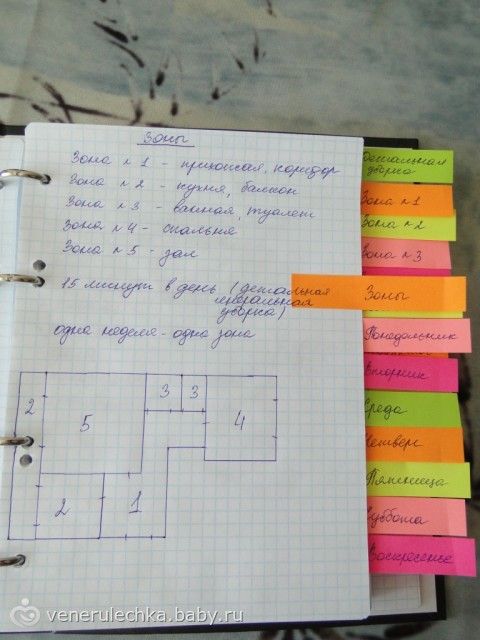 Зоны
Зона №1 - прихожая, коридор
Зона №2 - кухня, балкон
Зона №3 - ванная, туалет
Зона №4 - спальня
Зона №5 - зал
15 минут в день (детальная
генеральная
уборка)
одна неделя - одна зона
3 3
2
5
4
2
1
Детальная
уборка
Зона №1
Зона №2
Зона №3
Зоны
Понедельник
Вторник
Среда
Четверг
Пятница
Суббота
Воскресенье
venerulechka.baby.ru